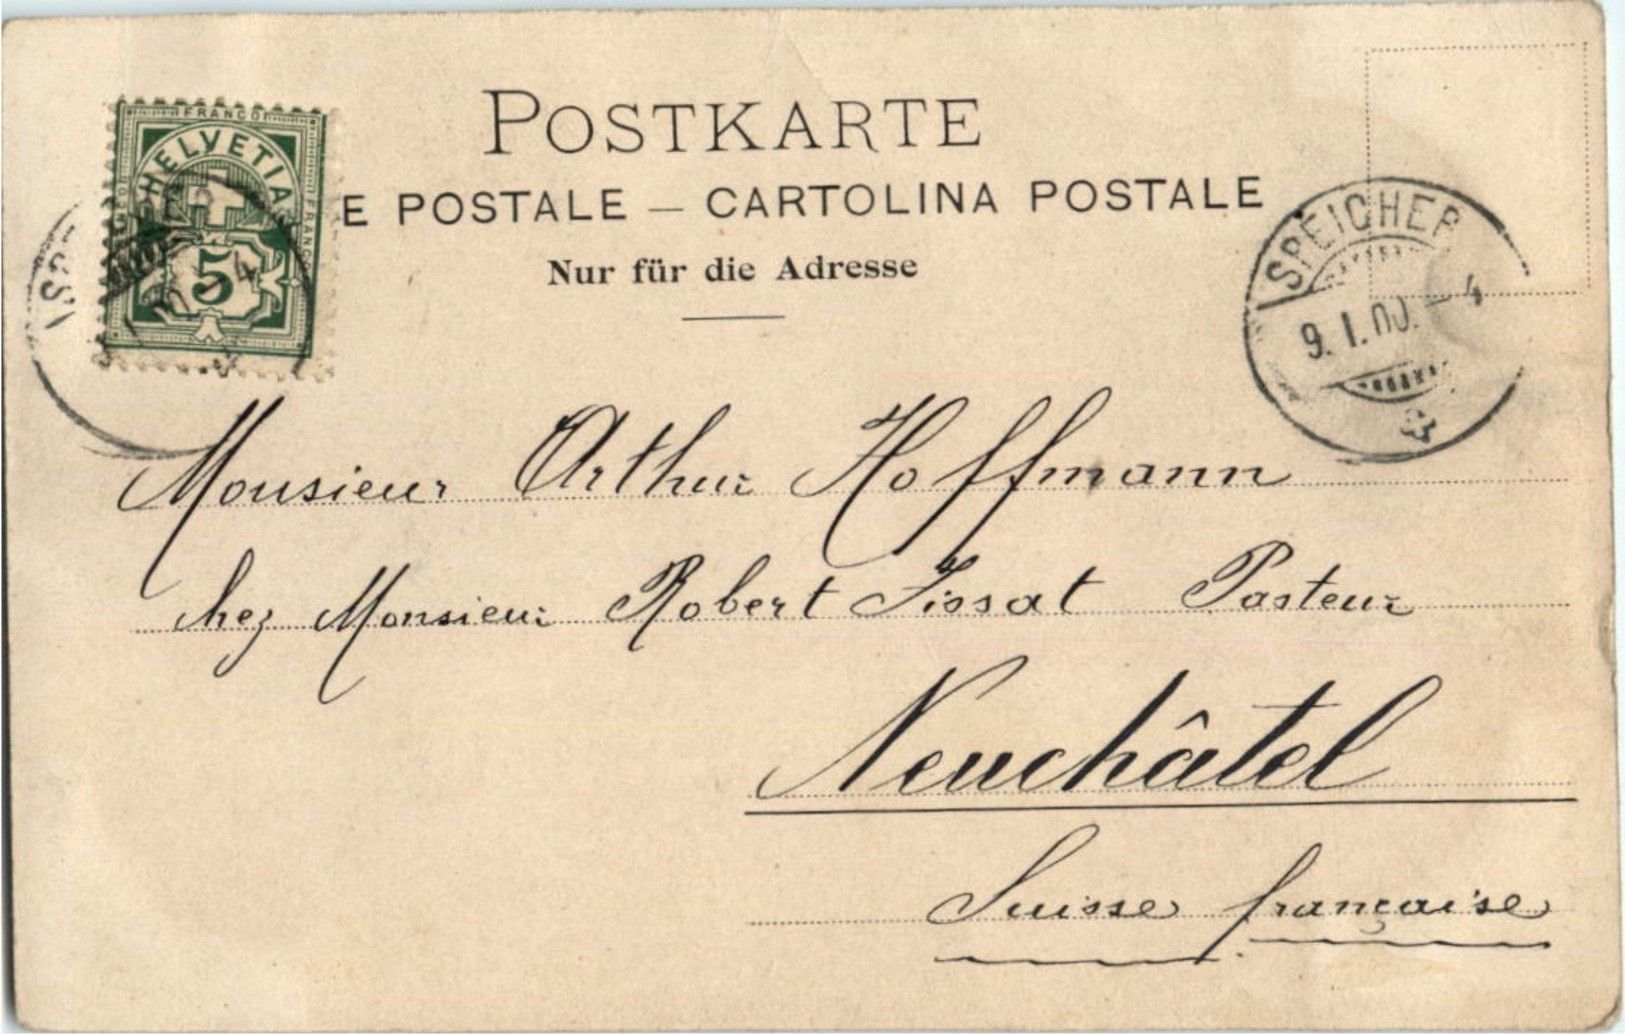 POSTKARTE
E POSTALE — CARTOLINA POSTALE
Nur für die Adresse
FRANCO
HELVETIA
FRANCO
5
SPEICHER
9.I.00.-4
Monsieur Arthur Hoffmann
chez Monsieur Robert Tissot Pasteur
Neuchâtel
Suisse française